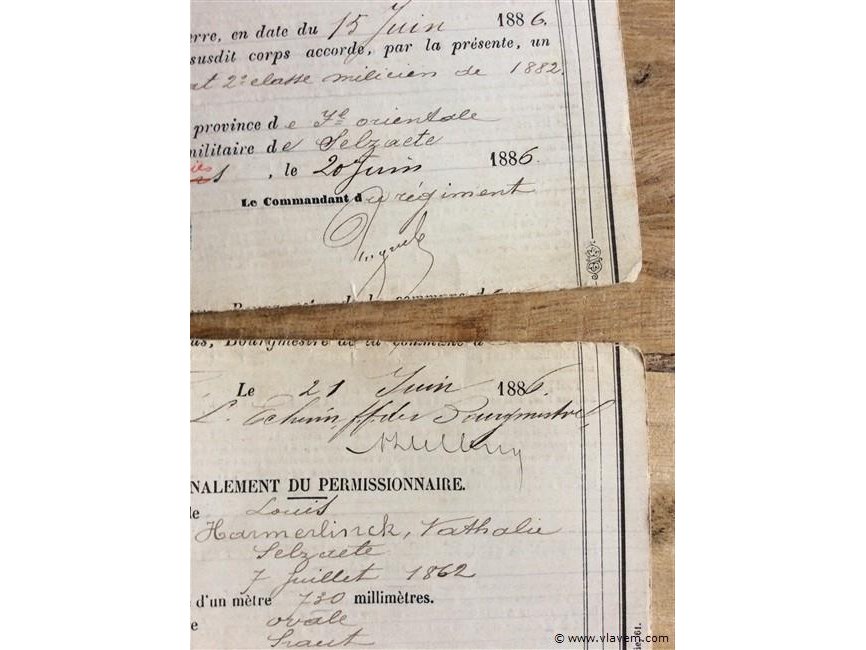 erre, en date du 15 Juin 1886.
susdit corps accorde, par la présente, un
at 2e classe milicien de 1882.
province de Fl. orientale
militaire de Selzaete
, le 20 Juin 1886.
Le Commandant du régiment
Bourgmestre de la commune d
Le 21 Juin 1886.
L'Echevin ff. de Bourgmestre,
NALEMENT DU PERMISSIONNAIRE.
le Louis
Hamerlinck, Nathalie
Selzaete
7 Juillet 1862
d'un mètre 730 millimètres.
e ovale
haut
© www.vlavem.com